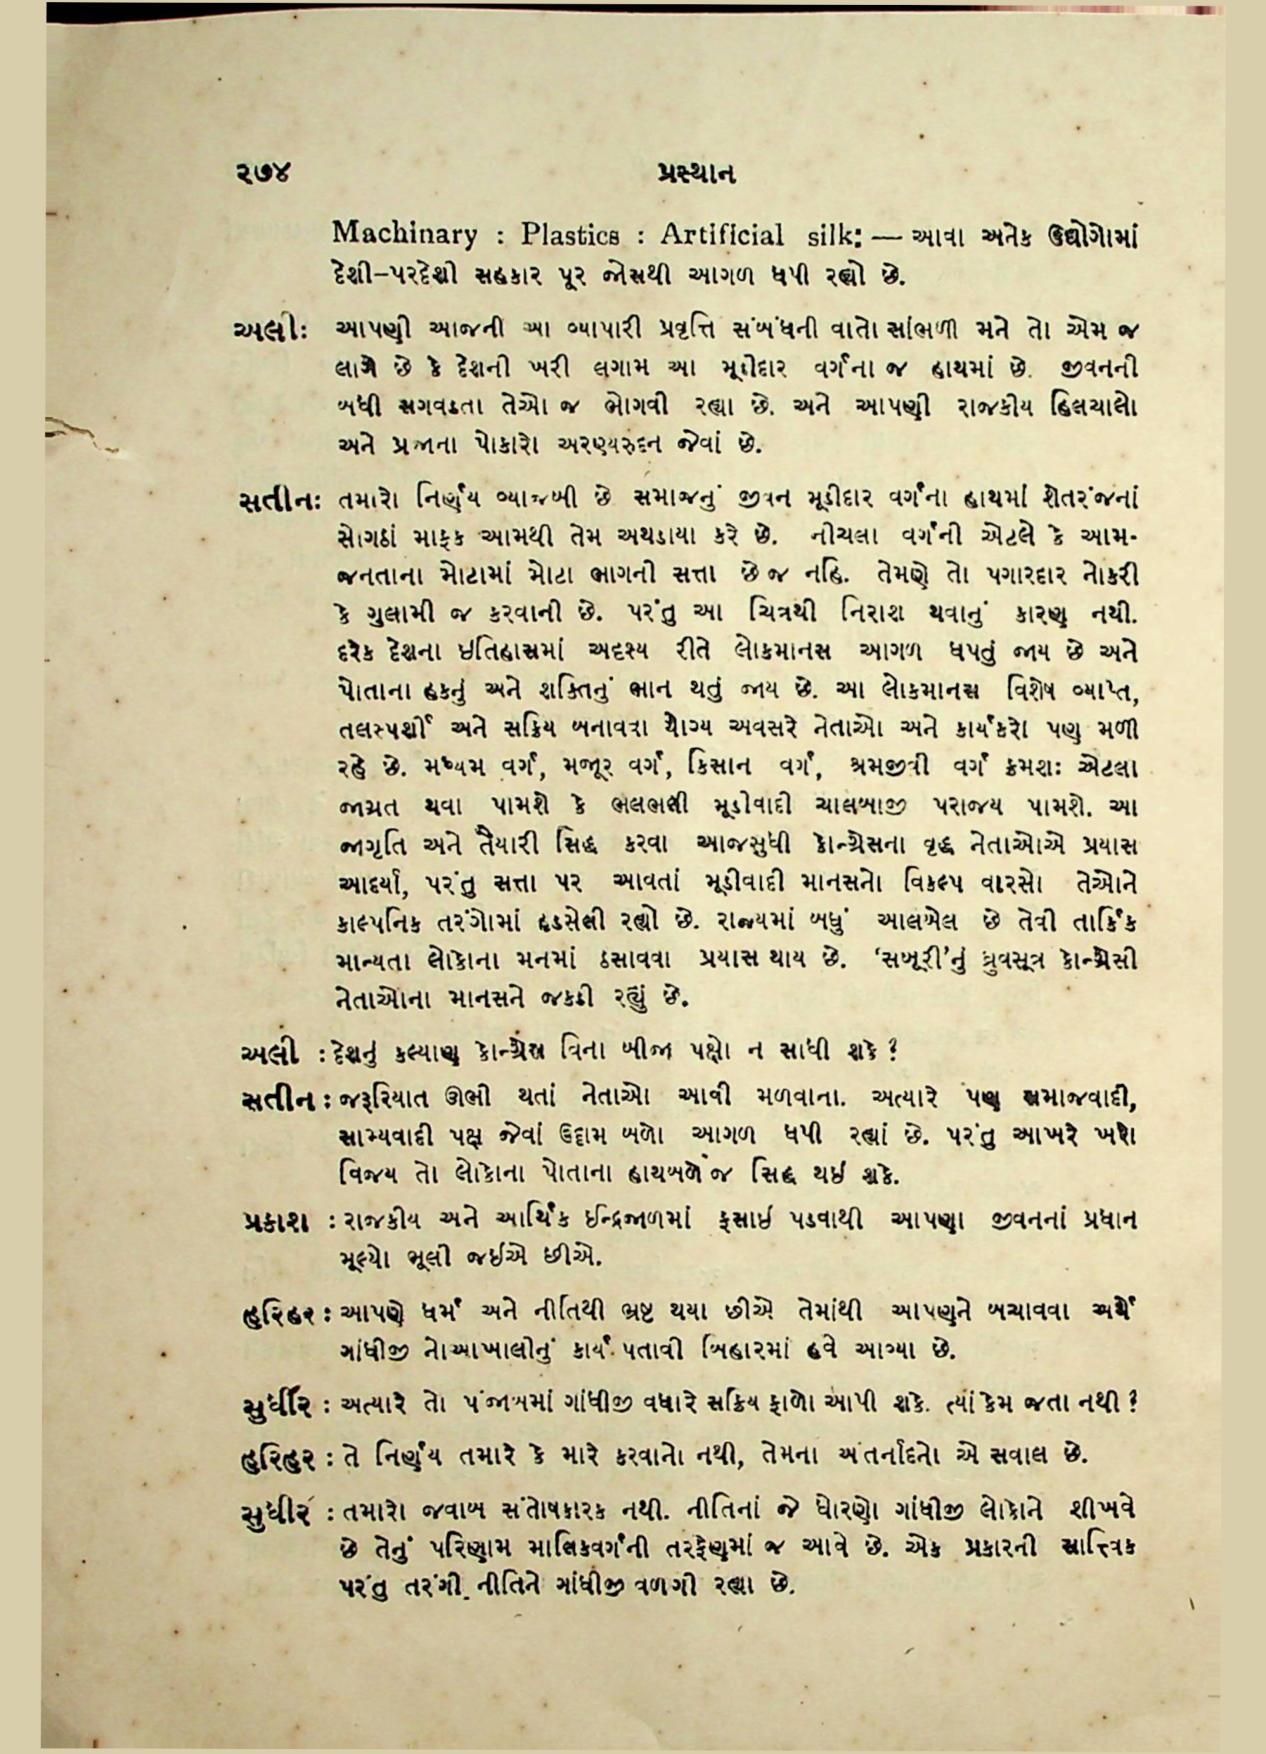 ૨૭૪
પ્રસ્થાન
Machinary : Plastics : Artificial silk: — આવા અનેક ઉદ્યોગોમાં
દેશી-પરદેશી સહકાર પૂર જોસથી આગળ ધપી રહ્યો છે.
અલી: આપણી આજની આ વ્યાપારી પ્રવૃત્તિ સંબંધની વાતો સાંભળી મને તો એમ જ
લાગે છે કે દેશની ખરી લગામ આ મૂડીદાર વર્ગના જ હાથમાં છે. જીવનની
બધી સગવડતા તેઓ જ ભોગવી રહ્યા છે. અને આપણી રાજકીય હિલચાલો
અને પ્રજાના પોકારો અરણ્યરુદન જેવાં છે.
સતીન: તમારો નિર્ણય વ્યાજબી છે સમાજનું જીવન મૂડીદાર વર્ગના હાથમાં શેતરંજનાં
સોગઠાં માફક આમથી તેમ અથડાયા કરે છે. નીચલા વર્ગની એટલે કે આમ-
જનતાના મોટામાં મોટા ભાગની સત્તા છે જ નહિ. તેમણે તો પગારદાર નોકરી
કે ગુલામી જ કરવાની છે. પરંતુ આ ચિત્રથી નિરાશ થવાનું કારણ નથી.
દરેક દેશના ઇતિહાસમાં અદૃશ્ય રીતે લોકમાનસ આગળ ધપતું જાય છે અને
પોતાના હકનું અને શક્તિનું ભાન થતું જાય છે. આ લોકમાનસ વિશેષ વ્યાપ્ત,
તલસ્પર્શી અને સક્રિય બનાવવા યોગ્ય અવસરે નેતાઓ અને કાર્યકરો પણ મળી
રહે છે. મધ્યમ વર્ગ, મજૂર વર્ગ, કિસાન વર્ગ, શ્રમજીવી વર્ગ ક્રમશઃ એટલા
જાગ્રત થવા પામશે કે ભલભલી મૂડીવાદી ચાલબાજી પરાજય પામશે. આ
જાગૃતિ અને તૈયારી સિદ્ધ કરવા આજસુધી કોન્ગ્રેસના વૃદ્ધ નેતાઓએ પ્રયાસ
આદર્યા, પરંતુ સત્તા પર આવતાં મૂડીવાદી માનસનો વિકલ્પ વારસો તેઓને
કાલ્પનિક તરંગોમાં હડસેલી રહ્યો છે. રાજ્યમાં બધું આલબેલ છે તેવી તાર્કિક
માન્યતા લોકોના મનમાં ઠસાવવા પ્રયાસ થાય છે. ‘સબૂરી’નું ધ્રુવસૂત્ર કોન્ગ્રેસી
નેતાઓના માનસને જકડી રહ્યું છે.
અલી : દેશનું કલ્યાણ કોન્ગ્રેસ વિના બીજા પક્ષો ન સાધી શકે ?
સતીન : જરૂરિયાત ઊભી થતાં નેતાઓ આવી મળવાના. અત્યારે પણ સમાજવાદી,
સામ્યવાદી પક્ષ જેવાં ઉદ્દામ બળો આગળ ધપી રહ્યાં છે. પરંતુ આખરે ખરો
વિજય તો લોકોના પોતાના હાથબળે જ સિદ્ધ થઇ શકે.
પ્રકાશ : રાજકીય અને આર્થિક ઇન્દ્રજાળમાં ફસાઇ પડવાથી આપણા જીવનનાં પ્રધાન
મૂલ્યો ભૂલી જઇએ છીએ.
હરિહર : આપણે ધર્મ અને નીતિથી ભ્રષ્ટ થયા છીએ તેમાંથી આપણને બચાવવા અર્થે
ગાંધીજી નોઆખાલીનું કાર્ય પતાવી બિહારમાં હવે આવ્યા છે.
સુધીર : અત્યારે તો પંજાબમાં ગાંધીજી વધારે સક્રિય ફાળો આપી શકે. ત્યાં કેમ જતા નથી ?
હરિહર : તે નિર્ણય તમારે કે મારે કરવાનો નથી, તેમના અંતર્નાદનો એ સવાલ છે.
સુધીર : તમારો જવાબ સંતોષકારક નથી. નીતિનાં જે ધોરણો ગાંધીજી લોકોને શીખવે
છે તેનું પરિણામ માલિકવર્ગની તરફેણમાં જ આવે છે. એક પ્રકારની સાત્ત્વિક
પરંતુ તરંગી નીતિને ગાંધીજી વળગી રહ્યા છે.